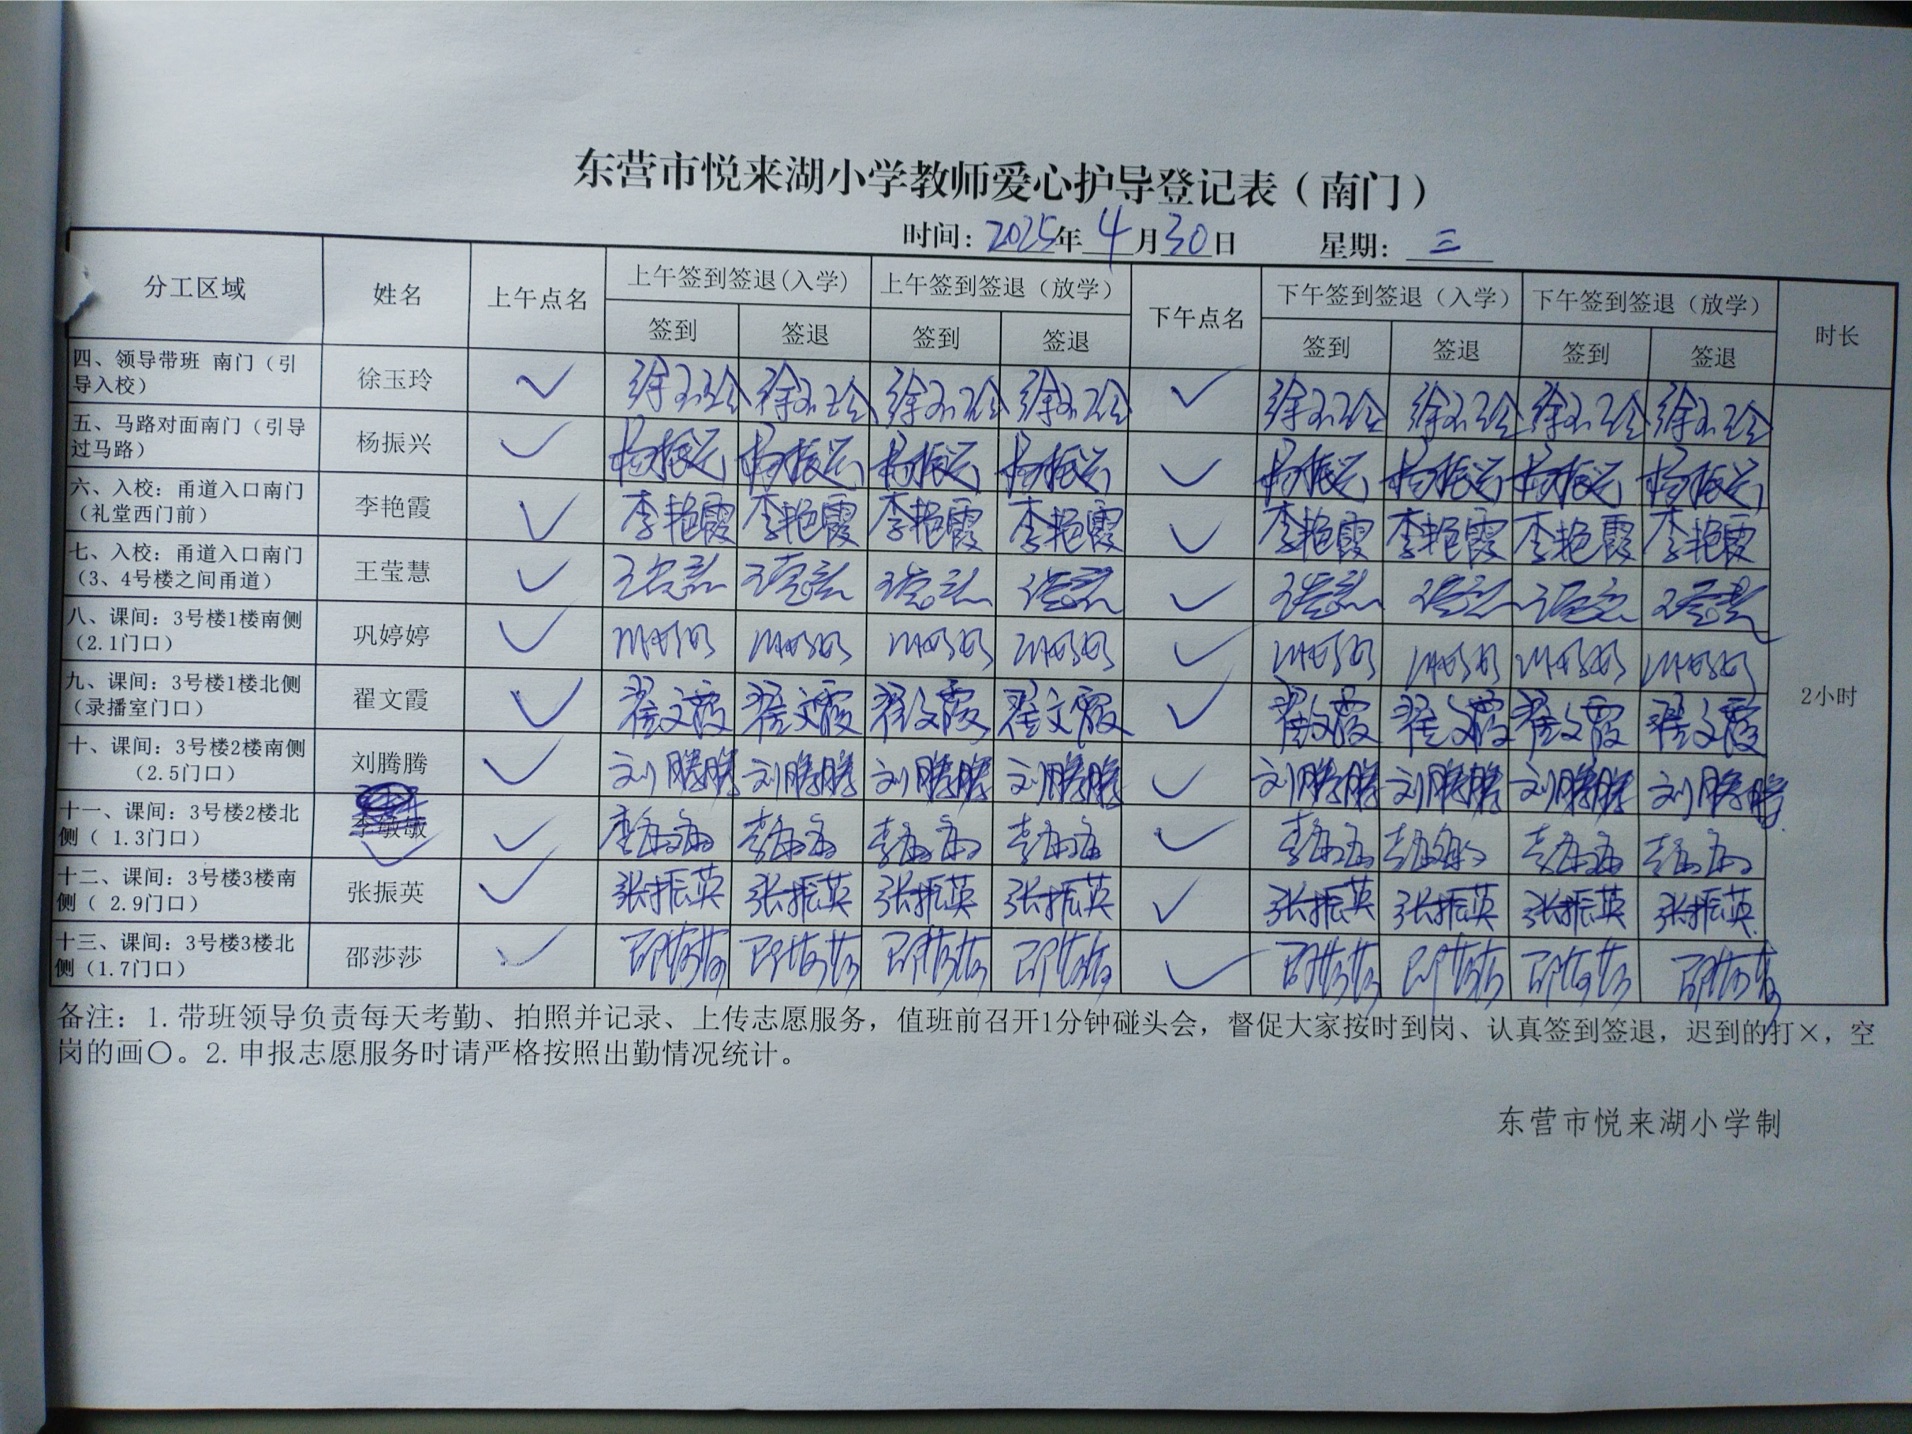 东营市悦来湖小学教师爱心护导登记表（南门）
时间：2025年 4月30日 星期：三
分工区域 姓名 上午点名 上午签到签退(入学) 上午签到签退（放学） 下午点名 下午签到签退（入学） 下午签到签退（放学） 时长
签到 签退 签到 签退 签到 签退 签到 签退
四、领导带班 南门（引
导入校） 徐玉玲 ✓ 徐玉玲 徐玉玲 徐玉玲 徐玉玲 ✓ 徐玉玲 徐玉玲 徐玉玲 徐玉玲
五、马路对面南门（引导
过马路） 杨振兴 ✓ 杨振兴 杨振兴 杨振兴 杨振兴 ✓ 杨振兴 杨振兴 杨振兴 杨振兴
六、入校：甬道入口南门
（礼堂西门前） 李艳霞 ✓ 李艳霞 李艳霞 李艳霞 李艳霞 ✓ 李艳霞 李艳霞 李艳霞 李艳霞
七、入校：甬道入口南门
（3、4号楼之间甬道） 王莹慧 ✓ 王莹慧 王莹慧 王莹慧 王莹慧 ✓ 王莹慧 王莹慧 王莹慧 王莹慧
八、课间：3号楼1楼南侧
（2.1门口） 巩婷婷 ✓ 巩婷婷 巩婷婷 巩婷婷 巩婷婷 ✓ 巩婷婷 巩婷婷 巩婷婷 巩婷婷
九、课间：3号楼1楼北侧
（录播室门口） 翟文霞 ✓ 翟文霞 翟文霞 翟文霞 翟文霞 ✓ 翟文霞 翟文霞 翟文霞 翟文霞 2小时
十、课间：3号楼2楼南侧
（2.5门口） 刘腾腾 ✓ 刘腾腾 刘腾腾 刘腾腾 刘腾腾 ✓ 刘腾腾 刘腾腾 刘腾腾 刘腾腾
十一、课间：3号楼2楼北
侧（ 1.3门口） 李敏敏 ✓ 李敏敏 李敏敏 李敏敏 李敏敏 ✓ 李敏敏 李敏敏 李敏敏 李敏敏
十二、课间：3号楼3楼南
侧（ 2.9门口） 张振英 ✓ 张振英 张振英 张振英 张振英 ✓ 张振英 张振英 张振英 张振英
十三、课间：3号楼3楼北
侧（1.7门口） 邵莎莎 ✓ 邵莎莎 邵莎莎 邵莎莎 邵莎莎 ✓ 邵莎莎 邵莎莎 邵莎莎 邵莎莎
备注：1.带班领导负责每天考勤、拍照并记录、上传志愿服务，值班前召开1分钟碰头会，督促大家按时到岗、认真签到签退，迟到的打×，空
岗的画○。2.申报志愿服务时请严格按照出勤情况统计。
东营市悦来湖小学制